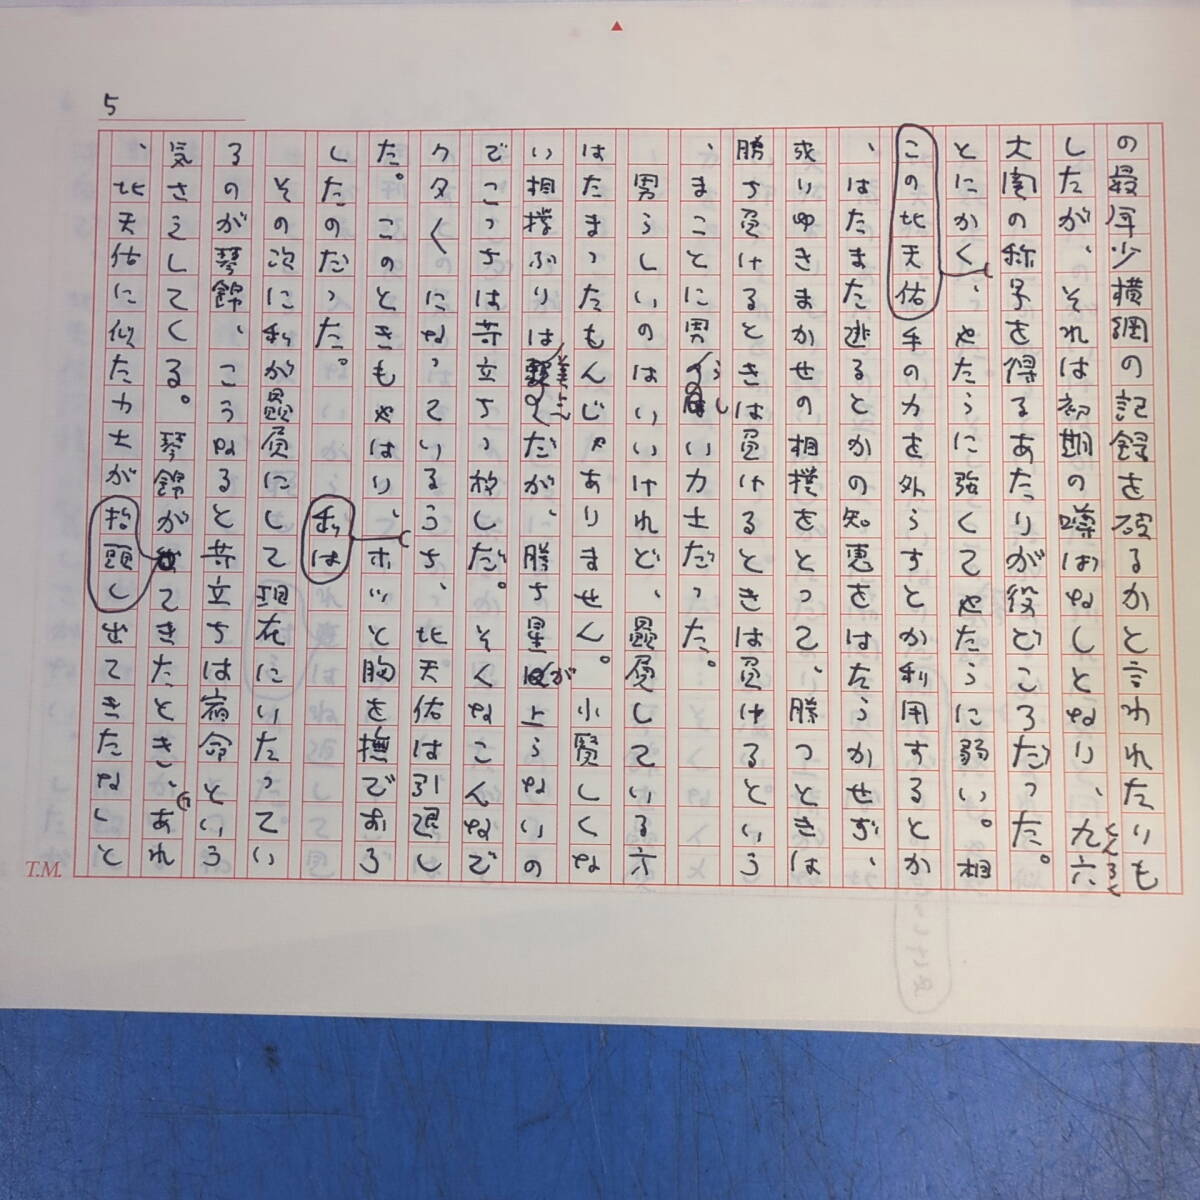 5
の最年少横綱の記録を破るかと言われたりも
したが、それは初期の噂ばなしとなり、九六
大関の称号を得るあたりが役どころだった。
とにかく、やたらに強くてやたらに弱い。相
この北天佑
手の力を外らすとか利用するとか
、はたまた逃るとかの知恵をはたらかせず、
成りゆきまかせの相撲をとって、勝つときは
勝ち負けるときは負けるときは負けるという
、まことに男らしい力士だった。
男らしいのはいいけれど、贔屓している六
はたまったもんじゃありません。小賢しくな
い相撲ぶりは美しくだが、勝ち星が上らないの
でこっちは苛立ちっ放しだ。そくなこんなで
クタくになっているうち、北天佑は引退し
た。このときもやはり、ホッと胸を撫でおろ
私は
したのだった。
その次に私が贔屓にして現在にいたってい
るのが琴錦、こうなると苛立ちは宿命という
気さえしてくる。琴錦が出てきたとき、あれ
、北天佑に似た力士が
抬頭し
出てきたなしと
T.M.